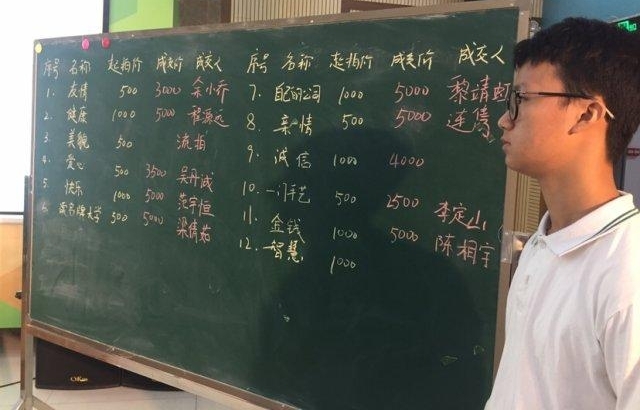 序号 名称 起拍价 成交价 成交人
1. 友情 500 3000 余小乔
2. 健康 1000 5000 程源远
3. 美貌 500 流拍
4. 爱心 500 3500 吴丹诚
5. 快乐 1000 5000 范宇恒
6. 读名牌大学 500 5000 梁倩茹
序号 名称 起拍阶 成交阶 成交人
7. 自己的公司 1000 5000 黎靖虹
8. 亲情 500 5000 连倩
9. 诚信 1000 4000
10. 一门手艺 500 2500 李定山
11. 金钱 1000 5000 陈相宇
12. 智慧 1000